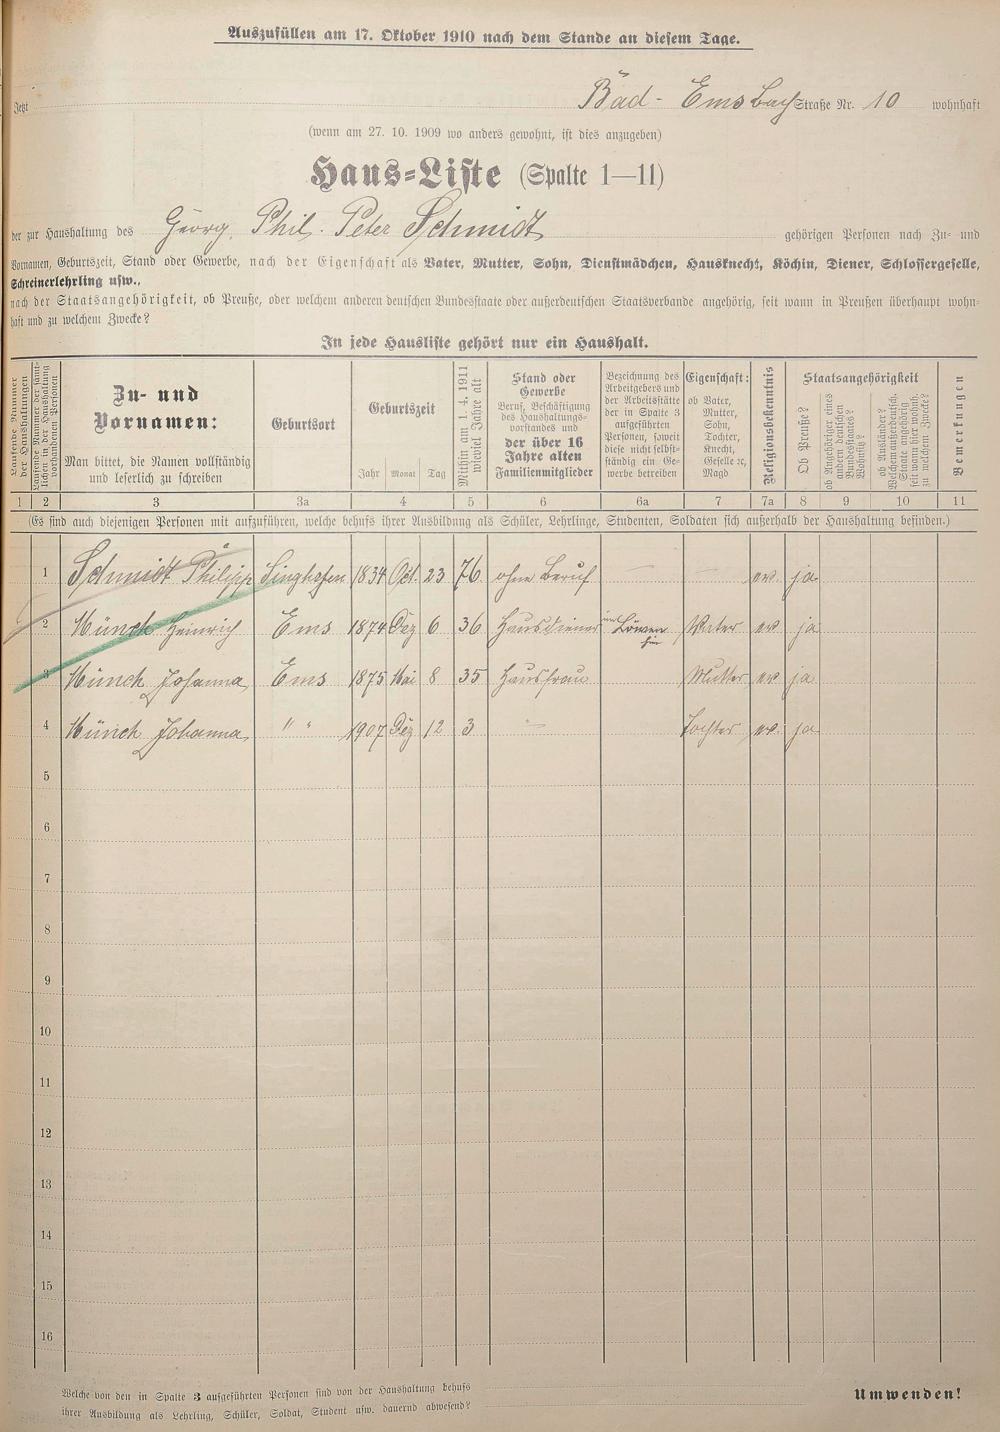 Auszufüllen am 17. Oktober 1910 nach dem Stande an diesem Tage.
Jetzt Bad-Ems Bach Straße Nr. 10 wohnhaft
(wenn am 27. 10. 1909 wo anders gewohnt, ist dies anzugeben)
Haus-Liste (Spalte 1—11)
der zur Haushaltung des Georg. Phil. Peter Schmidt gehörigen Personen nach Zu- und
Vornamen, Geburtszeit, Stand oder Gewerbe, nach der Eigenschaft als Vater, Mutter, Sohn, Dienstmädchen, Hausknecht, Köchin, Diener, Schlossergeselle,
Schreinerlehrling usw.,
nach der Staatsangehörigkeit, ob Preuße, oder welchem anderen deutschen Bundesstaate oder außerdeutschen Staatsverbande angehörig, seit wann in Preußen überhaupt wohn-
haft und zu welchem Zwecke?
In jede Hausliste gehört nur ein Haushalt.
Laufende Nummer
der Haushaltungen
Laufende Nummer der sämt-
lichen in der Haushaltung
vorhandenen Personen
Zu- und
Vornamen:
Man bittet, die Namen vollständig
und leserlich zu schreiben
Geburtsort
Geburtszeit
Jahr Monat Tag
Mithin am 1. 4. 1911
wieviel Jahre alt
Stand oder
Gewerbe
Beruf, Beschäftigung
des Haushaltungs-
vorstandes und
der über 16
Jahre alten
Familienmitglieder
Bezeichnung des
Arbeitgebers und
der Arbeitsstätte
der in Spalte 3
aufgeführten
Personen, soweit
diese nicht selbst-
ständig ein Ge-
werbe betreiben
Eigenschaft:
ob Vater,
Mutter,
Sohn,
Tochter,
Knecht,
Geselle ꝛc,
Magd
Religionsbekenntnis
Staatsangehörigkeit
Ob Preuße?
ob Angehöriger eines
andern deutschen
Bundesstaates?
Wohnsitz?
ob Ausländer?
Welchem außerdeutsch.
Staate angehörig
seit wann hier wohnh.
zu welchem Zwecke?
Bemerkungen
1 2 3 3a 4 5 6 6a 7 7a 8 9 10 11
(Es sind auch diejenigen Personen mit aufzuführen, welche behufs ihrer Ausbildung als Schüler, Lehrlinge, Studenten, Soldaten sich außerhalb der Haushaltung befinden.)
1 Schmidt Philipp Singhofen 1834 Oct. 23 76 ohne Beruf — — ev. ja
2 Münch Heinrich Ems 1874 Dez 6 36 Hausdiener im Löwen Vater ev ja
3 Münch Johanna Ems 1875 Mai 8 35 Hausfrau Mutter ev ja
4 Münch Johanna " " 1907 Dez 12 3 — Tochter ev. ja
5
6
7
8
9
10
11
12
13
14
15
16
Welche von den in Spalte 3 aufgeführten Personen sind von der Haushaltung behufs
ihrer Ausbildung als Lehrling, Schüler, Soldat, Student usw. dauernd abwesend?
Umwenden!